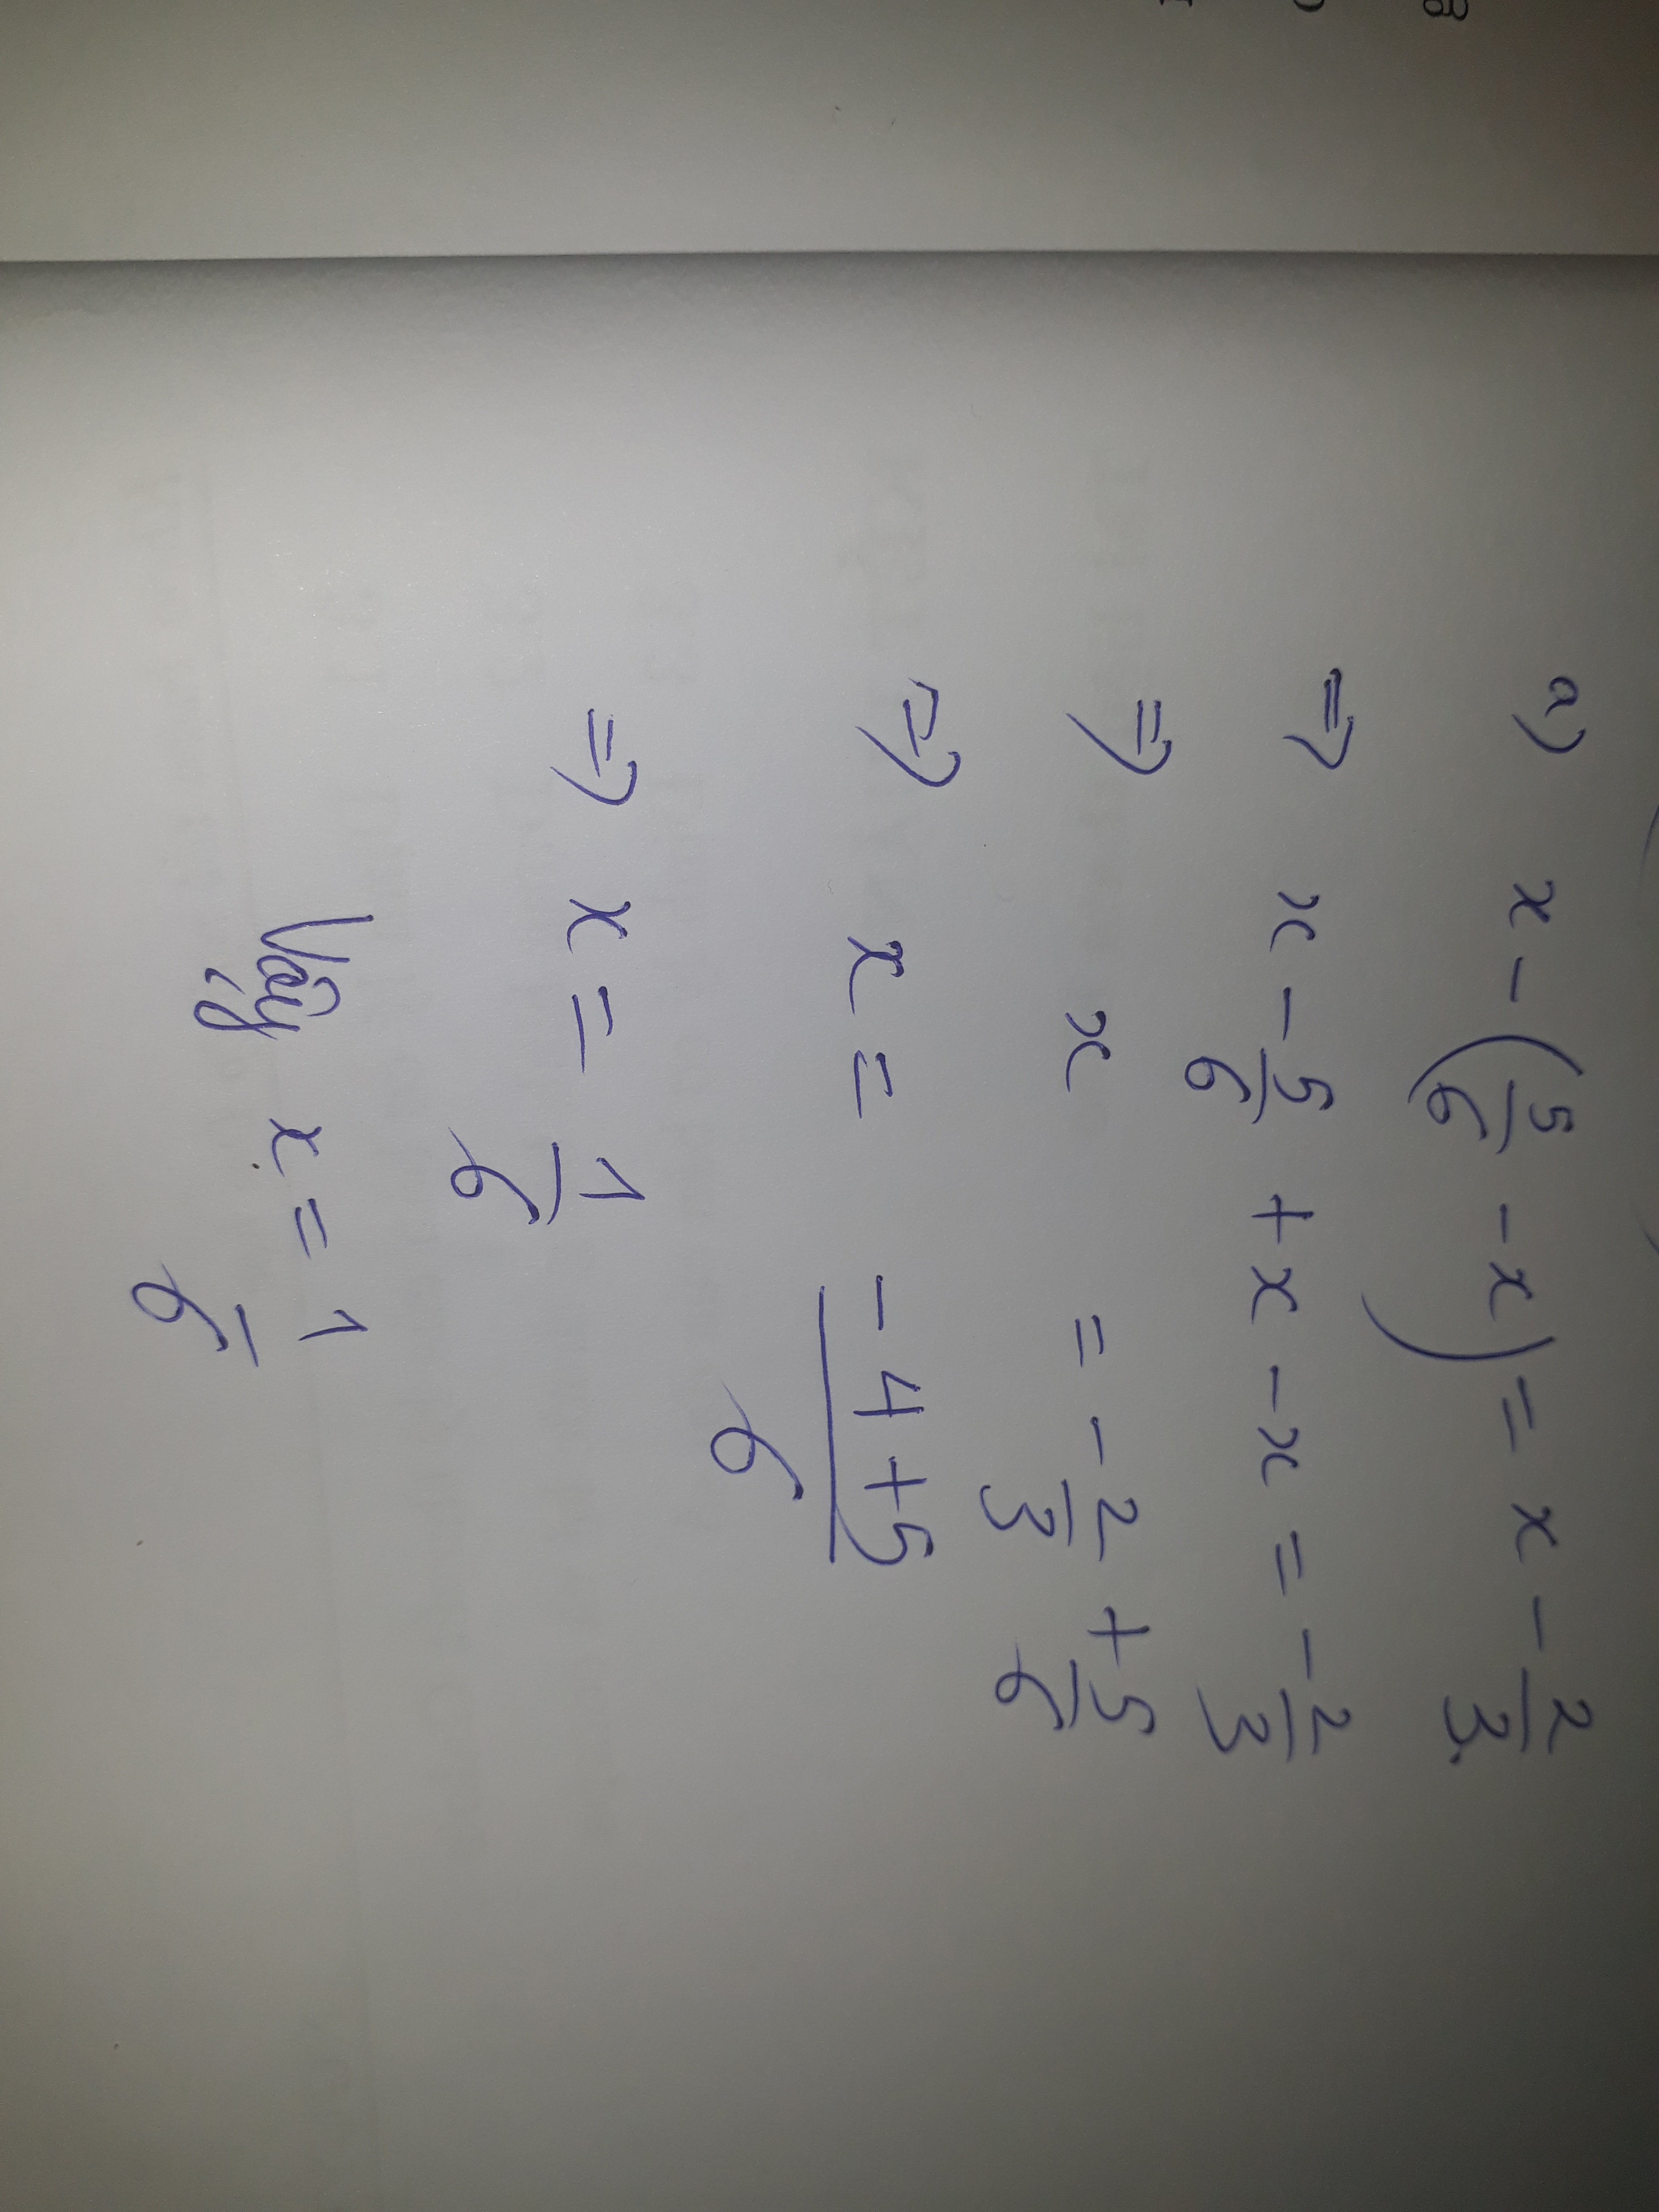 a) x - (5/6 - x) = x - 2/3
=> x - 5/6 + x - x = -2/3
=> x = -2/3 + 5/6
=> x = (-4+5)/6
=> x = 1/6
Vậy x = 1/6